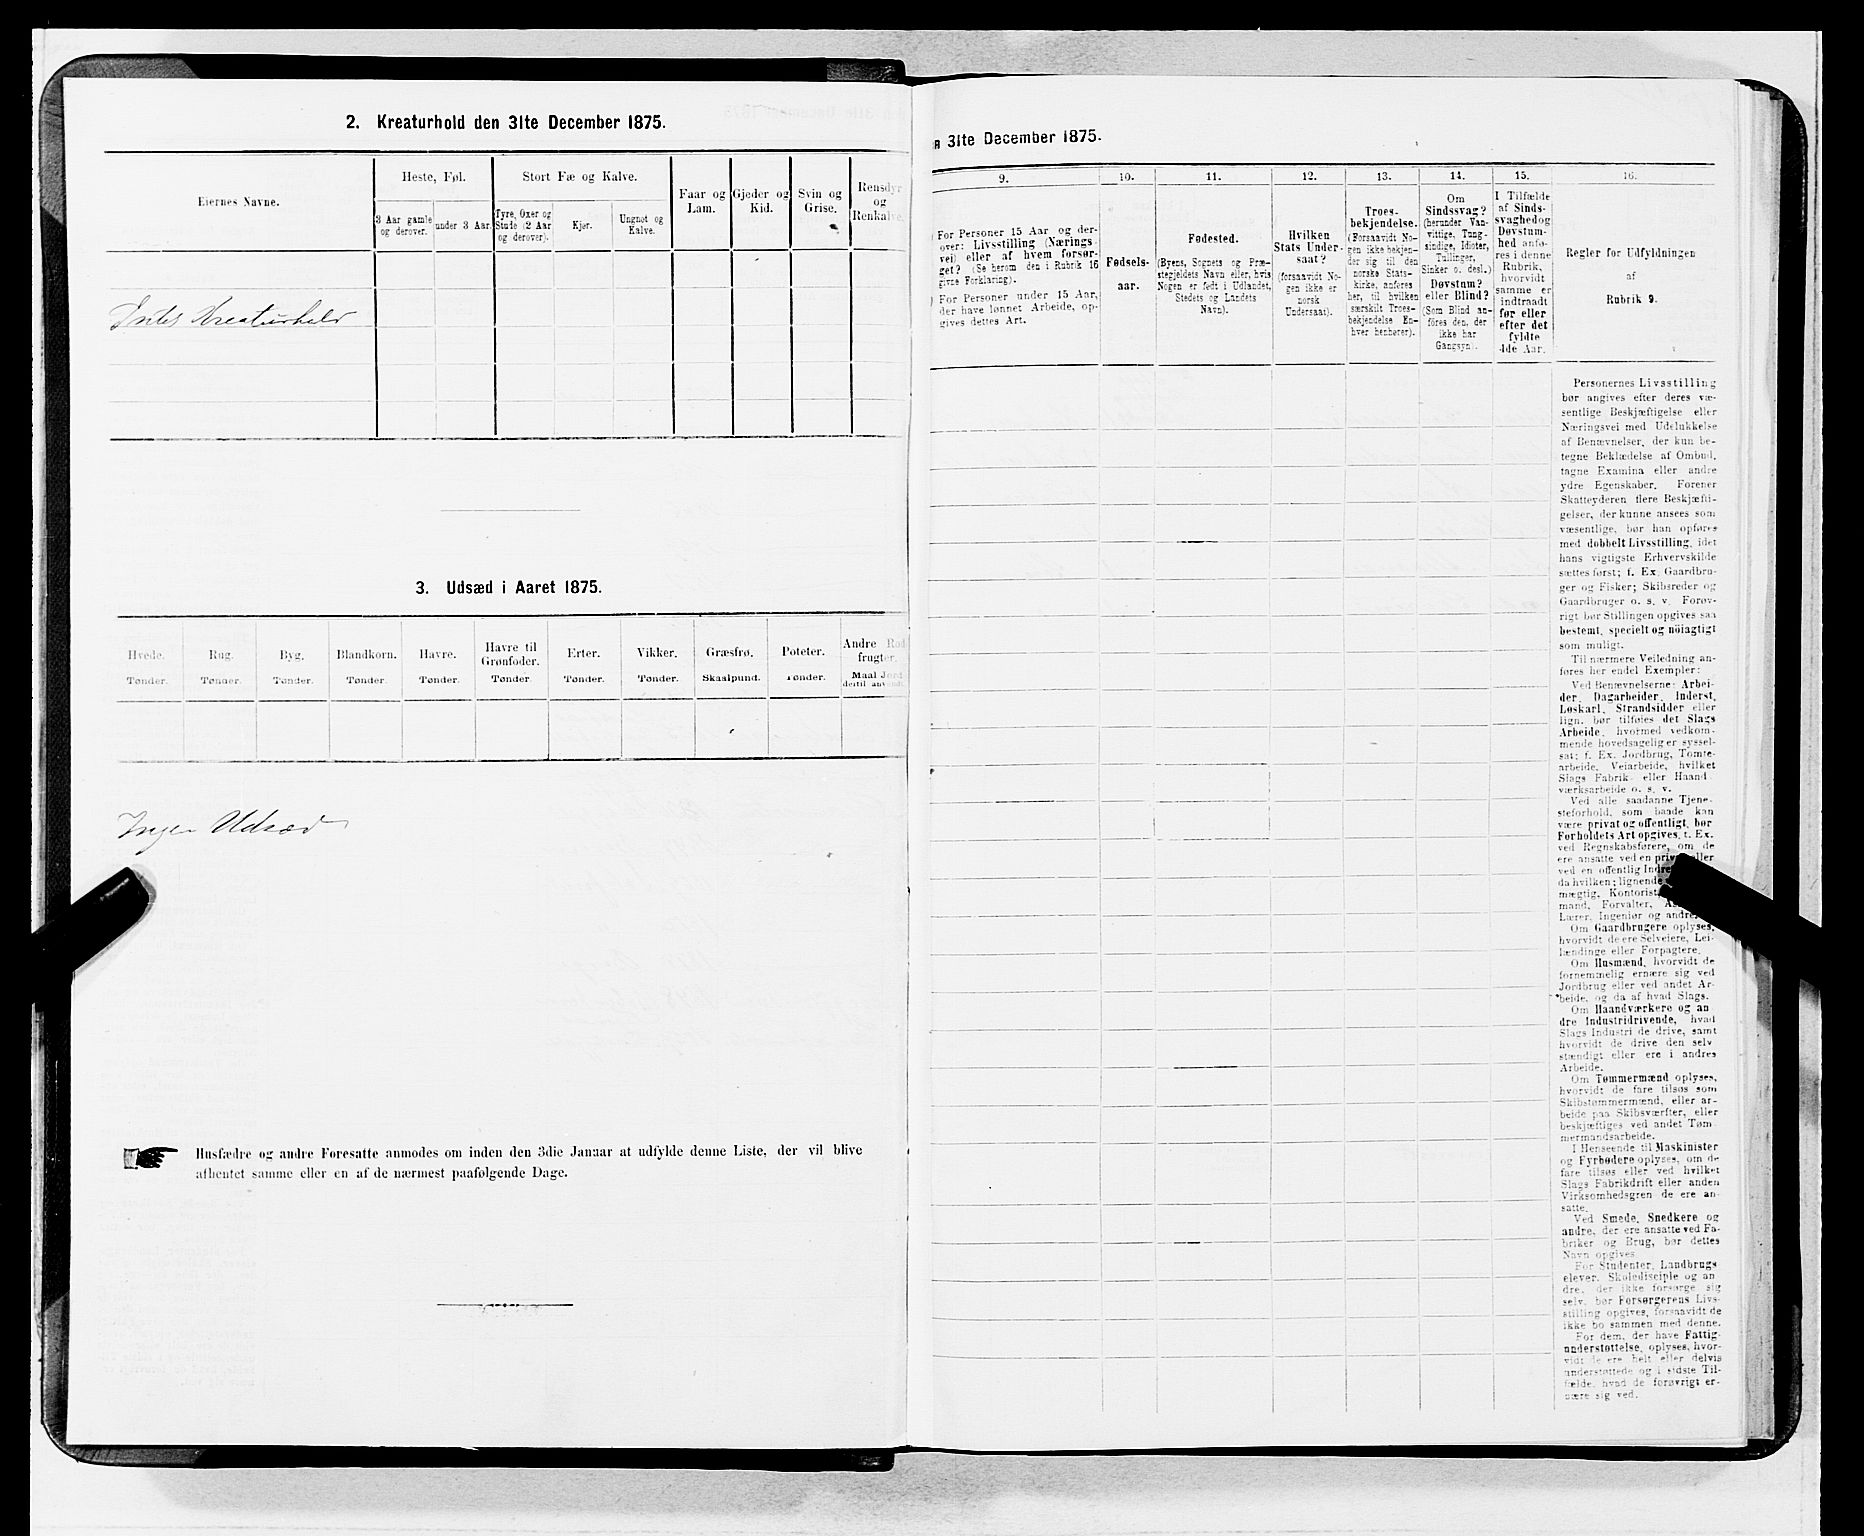 2. Kreaturhold den 31te December 1875.
Eiernes Navne.
Heste, Føl.
3 Aar gamle
og derover.
under 3 Aar.
Stort Fæ og Kalve.
Tyre, Oxer og
Stude (2 Aar
og derover).
Kjør.
Ungnøt og
Kalve.
Faar og
Lam.
Gjeder og
Kid.
Svin og
Grise.
Rensdyr
og
Renkalve.
Intet Kreaturhold
3. Udsæd i Aaret 1875.
Hvede.
Tønder.
Rug.
Tønder.
Byg.
Tønder.
Blandkorn.
Tønder.
Havre.
Tønder.
Havre til
Grønfoder.
Tønder.
Erter.
Tønder.
Vikker.
Tønder.
Græsfrø.
Skaalpund.
Poteter.
Tønder.
Andre Rod
frugter.
Maal Jord
dertil anvendt.
Ingen Udsæd
Husfædre og andre Foresatte anmodes om inden den 3die Januar at udfylde denne Liste, der vil blive
afhentet samme eller en af de nærmest paafølgende Dage.
31te December 1875.
9.
For Personer 15 Aar og der-
over: Livsstilling (Nærings-
vei) eller af hvem forsør-
get? (Se herom den i Rubrik 16
givne Forklaring).
For Personer under 15 Aar,
der have lønnet Arbeide, op-
gives dettes Art.
10.
Fødsels-
aar.
11.
Fødested.
(Byens, Sognets og Præ-
stegjeldets Navn eller, hvis
Nogen er født i Udlandet,
Stedets og Landets
Navn).
12.
Hvilken
Stats Under-
saat?
(forsaavidt No-
gen ikke er
norsk
Undersaat).
13.
Troes-
bekjendelse.
(Forsaavidt No-
gen ikke bekjen-
der sig til den
norske Stats-
kirke, anføres
her, til hvilken
særskilt Troes-
bekjendelse En-
hver henhører).
14.
Om
Sindssvag?
(herunder Van-
vittige, Tung-
sindige, Idioter,
Tullinger,
Sinker o. desl.)
Døvstum?
eller Blind?
(Som Blind an-
føres den, der
ikke har
Gangsyn).
15.
I Tilfælde
af Sinds-
svaghed og
Døvstum-
hed anfø-
res i denne
Rubrik,
hvorvidt
samme er
indtraadt
før eller
efter det
fyldte
4de Aar.
16.
Regler for Udfyldningen
af
Rubrik 9.
Personernes Livsstilling
bør angives efter deres væ-
sentlige Beskjæftigelse eller
Næringsvei med Udelukkelse
af Benævnelser, der kun be-
tegne Beklædelse af Ombud,
tagne Examina eller andre
ydre Egenskaber. Forener
Skatteyderen flere Beskjæfti-
gelser, der kunne ansees som
væsentlige, bør han opføres
med dobbelt Livsstilling, idet
hans vigtigste Erhvervskilde
sættes først; f. Ex. Gaardbru-
ger og Fisker; Skibsreder og
Gaardbruger o. s. v. Forøv-
rigt bør Stillingen opgives saa
bestemt, specielt og nøiagtigt
som muligt.
Til nærmere Veiledning an-
føres her endel Exempler:
Ved Benævnelserne: Arbei-
der, Dagarbeider, Inderst,
Løskarl, Strandsidder eller
lign. bør tilføies det Slags
Arbeide, hvormed vedkom-
mende hovedsagelig er syssel-
sat; f. Ex. Jordbrug, Tomte-
arbeide, Veiarbeide, hvilket
Slags Fabrik- eller Haand-
værksarbeide o. s. v.
Ved alle saadanne Tjene-
steforhold, som baade kan
være privat og offentligt, bør
Forholdets Art opgives, t. Ex.
ved Regnskabsførere, om de
ere ansatte ved en privat eller
ved en offentlig
da hvilken; lignende
mægtig, Kontorist,
mand, Forvalter,
Lærer, Ingeniør og andre.
Om Gaardbrugere oplyses,
hvorvidt de ere Selveiere, Lei-
lændinge eller Forpagtere.
Om Husmænd, hvorvidt de
fornemmelig ernære sig ved
Jordbrug eller ved andet Ar-
beide, og da af hvad Slags.
Om Haandværkere og an
dre Industridrivende, hvad
Slags Industri de drive, samt
hvorvidt de drive den selv
stændigt eller ere i andres
Arbeide.
Om Tømmermænd oplyses,
hvorvidt de fare tilsøs som
Skibstømmermænd, eller ar-
beide paa Skibsværfter, eller
beskjæftiges ved andet Tøm
mermandsarbeide.
I Henseende til Maskinister
og Fyrbødere oplyses, om de
fare tilsøs eller ved hvilket
Slags Fabrikdrift eller anden
Virksomhedsgren de ere an-
satte.
Ved Smede, Snedkere og
andre, der ere ansatte ved Fa-
briker og Brug, bør dettes
Navn opgives.
For Studenter, Landbrugs
elever, Skoledisciple og an
dre, der ikke forsørge sig
selv, bør Forsørgerens Livs-
stilling opgives, forsaavidt de
ikke bo sammen med denne.
For dem, der have Fattig-
understøttelse, oplyses, hvor-
vidt de ere helt eller delvis
understøttede og i sidste Til-
fælde, hvad de forøvrigt er-
nære sig ved.